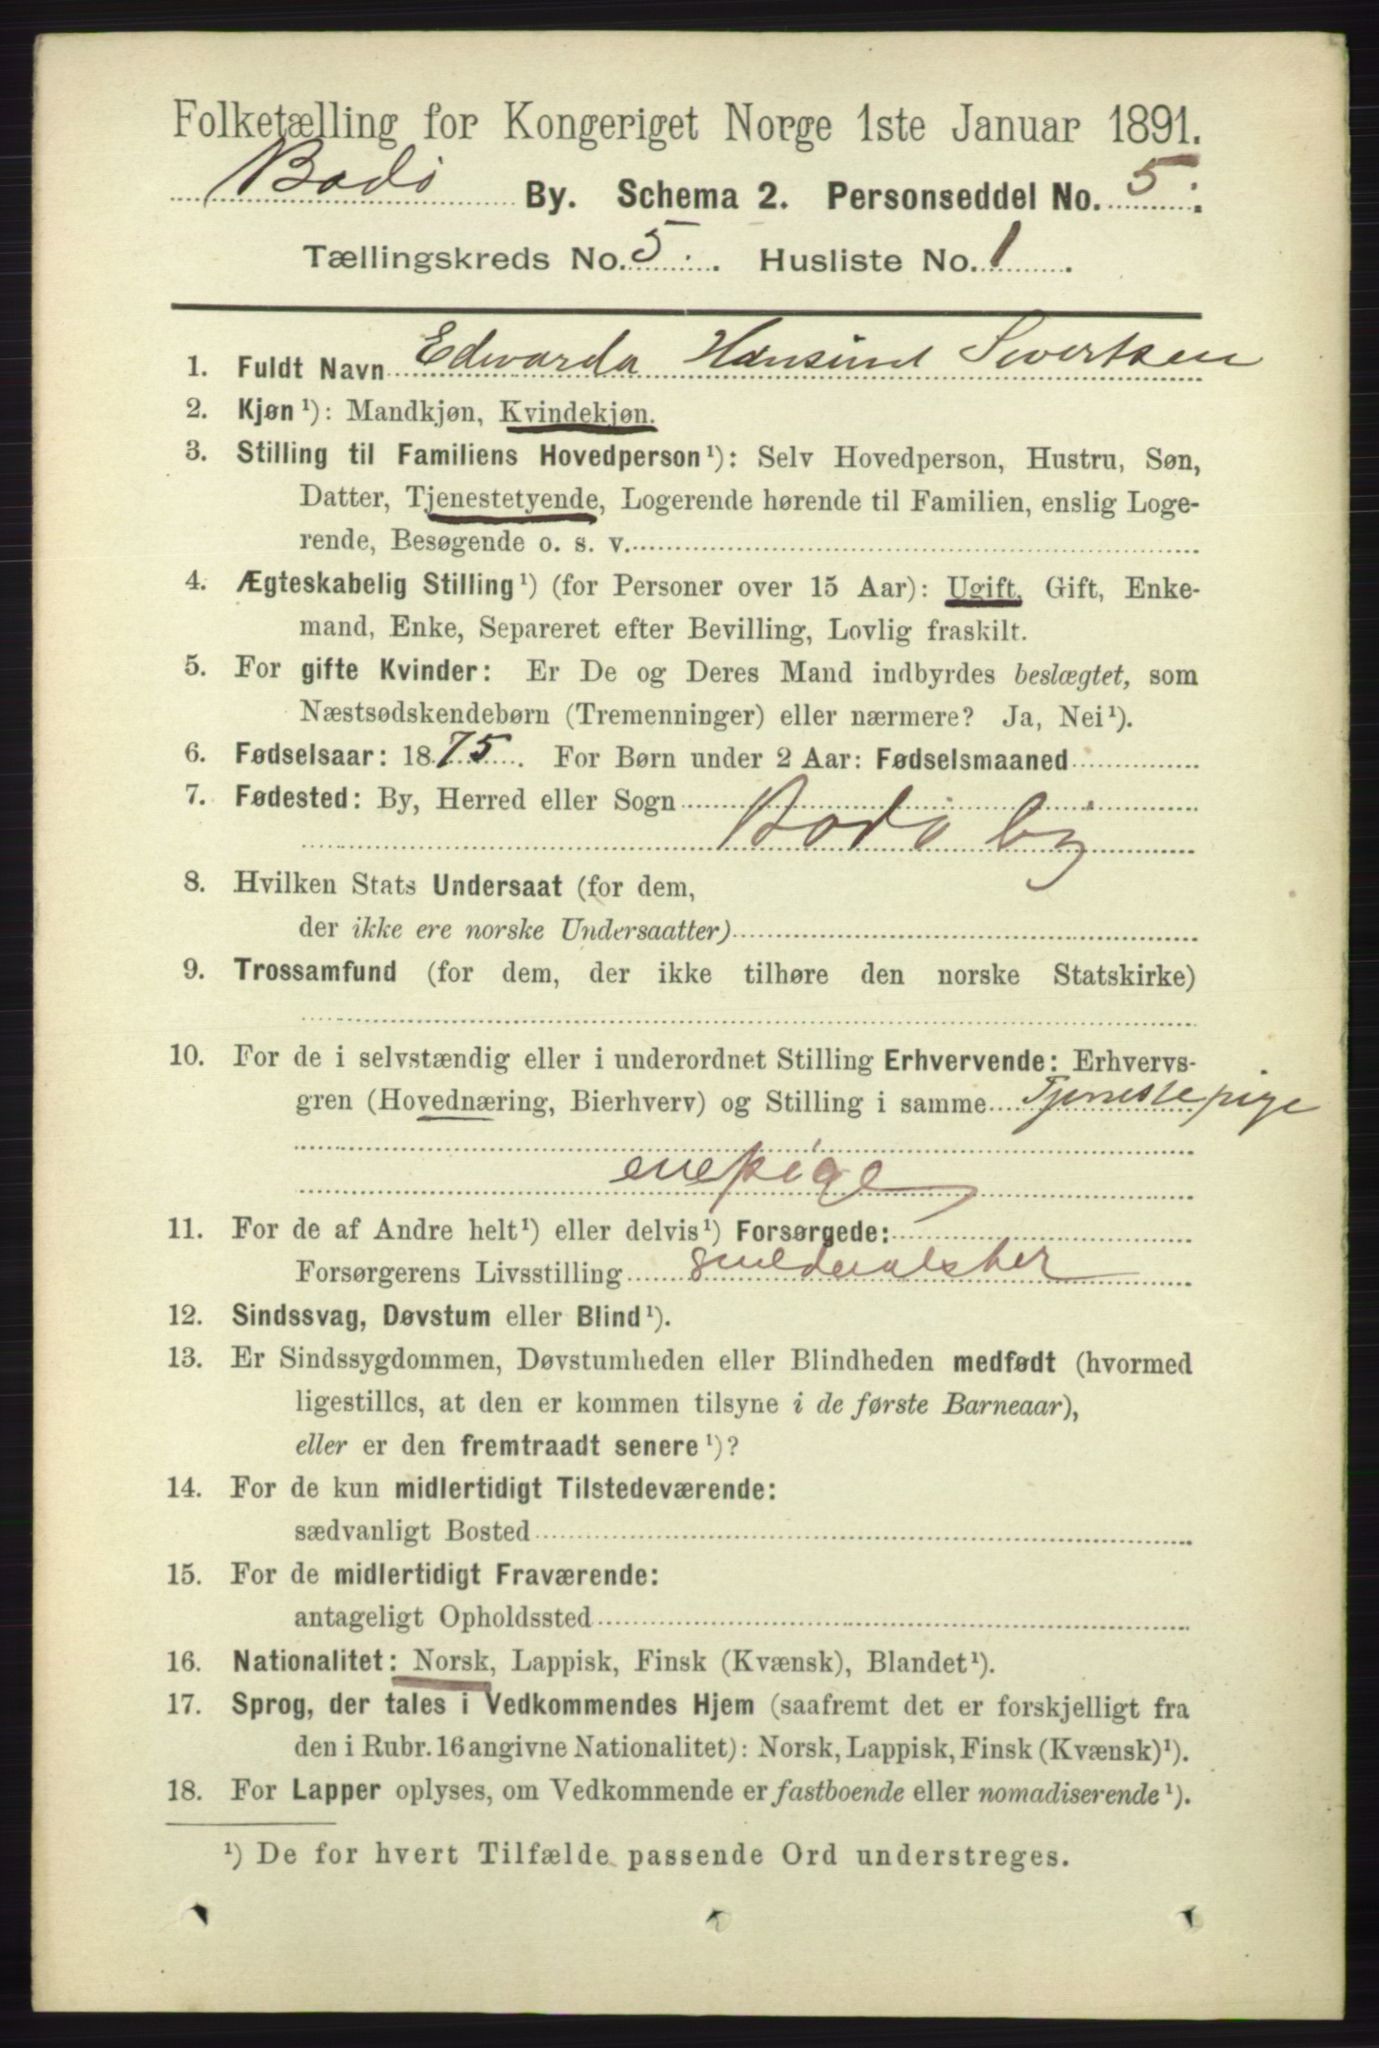 Folketælling for Kongeriget Norge 1ste Januar 1891.
Bodö By. Schema 2. Personseddel No. 5.
Tællingskreds No. 5. Husliste No. 1.
1. Fuldt Navn Edwarda Hansine Sivertsen
2. Kjøn ¹): Mandkjøn, Kvindekjøn.
3. Stilling til Familiens Hovedperson ¹): Selv Hovedperson, Hustru, Søn,
Datter, Tjenestetyende, Logerende hørende til Familien, enslig Loge-
rende, Besøgende o. s. v.
4. Ægteskabelig Stilling ¹) (for Personer over 15 Aar): Ugift, Gift, Enke-
mand, Enke, Separeret efter Bevilling, Lovlig fraskilt.
5. For gifte Kvinder: Er De og Deres Mand indbyrdes beslægtet, som
Næstsødskendebørn (Tremenninger) eller nærmere? Ja, Nei ¹).
6. Fødselsaar: 1875. For Børn under 2 Aar: Fødselsmaaned
7. Fødested: By, Herred eller Sogn
Bodö by
8. Hvilken Stats Undersaat (for dem,
der ikke ere norske Undersaatter)
9. Trossamfund (for dem, der ikke tilhøre den norske Statskirke)
10. For de i selvstændig eller i underordnet Stilling Erhvervende: Erhvervs-
gren (Hovednæring, Bierhverv) og Stilling i samme Tjenestepige
enepige
11. For de af Andre helt ¹) eller delvis ¹) Forsørgede:
Forsørgerens Livsstilling
12. Sindssvag, Døvstum eller Blind ¹).
13. Er Sindssygdommen, Døvstumheden eller Blindheden medfødt (hvormed
ligestilles, at den er kommen tilsyne i de første Barneaar),
eller er den fremtraadt senere ¹)?
14. For de kun midlertidigt Tilstedeværende:
sædvanligt Bosted
15. For de midlertidigt Fraværende:
antageligt Opholdssted
16. Nationalitet: Norsk, Lappisk, Finsk (Kvænsk), Blandet ¹).
17. Sprog, der tales i Vedkommendes Hjem (saafremt det er forskjelligt fra
den i Rubr. 16 angivne Nationalitet): Norsk, Lappisk, Finsk (Kvænsk) ¹).
18. For Lapper oplyses, om Vedkommende er fastboende eller nomadiserende ¹).
¹) De for hvert Tilfælde passende Ord understreges.